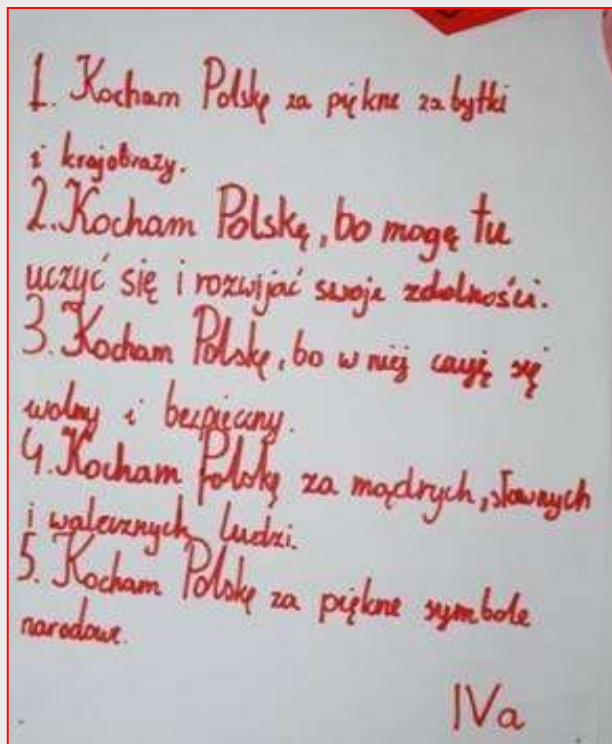 1. Kocham Polskę za piękne zabytki
i krajobrazy.
2. Kocham Polskę, bo mogę tu
uczyć się i rozwijać swoje zdolności.
3. Kocham Polskę, bo w niej czuję się
wolny i bezpieczny.
4. Kocham Polskę za mądrych, sławnych
i walecznych ludzi.
5. Kocham Polskę za piękne symbole
narodowe.
IVa